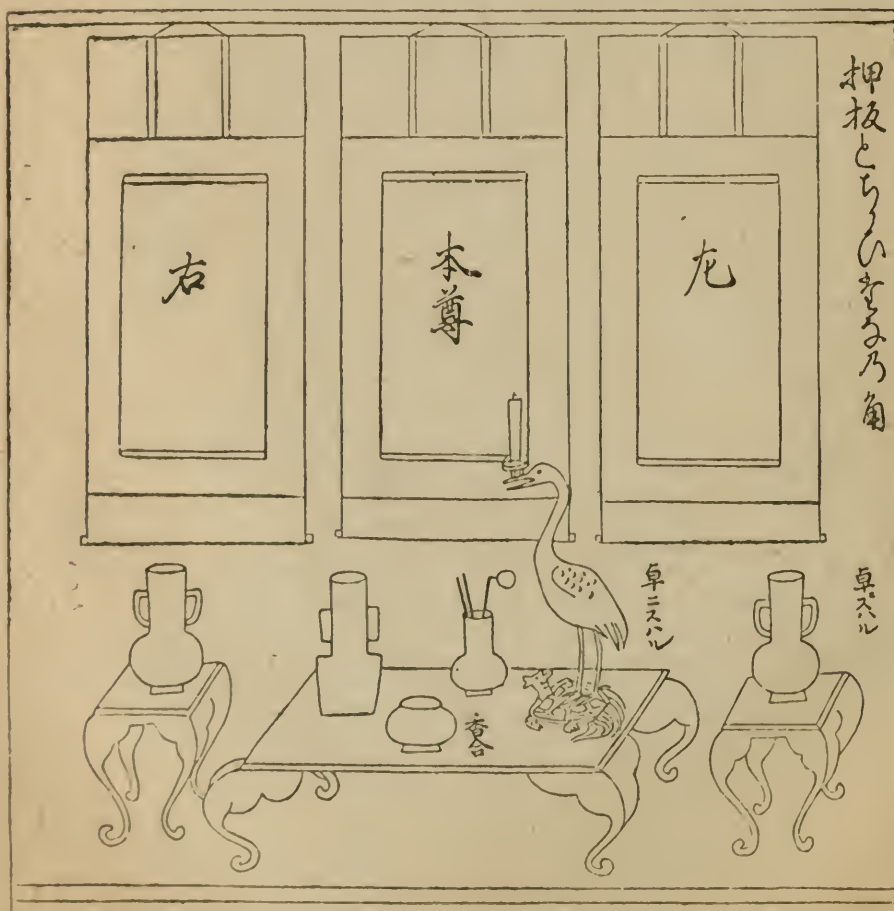 押板とちかひたな乃角
左
本尊
右
卓ニスハル
卓ニスハル
香合